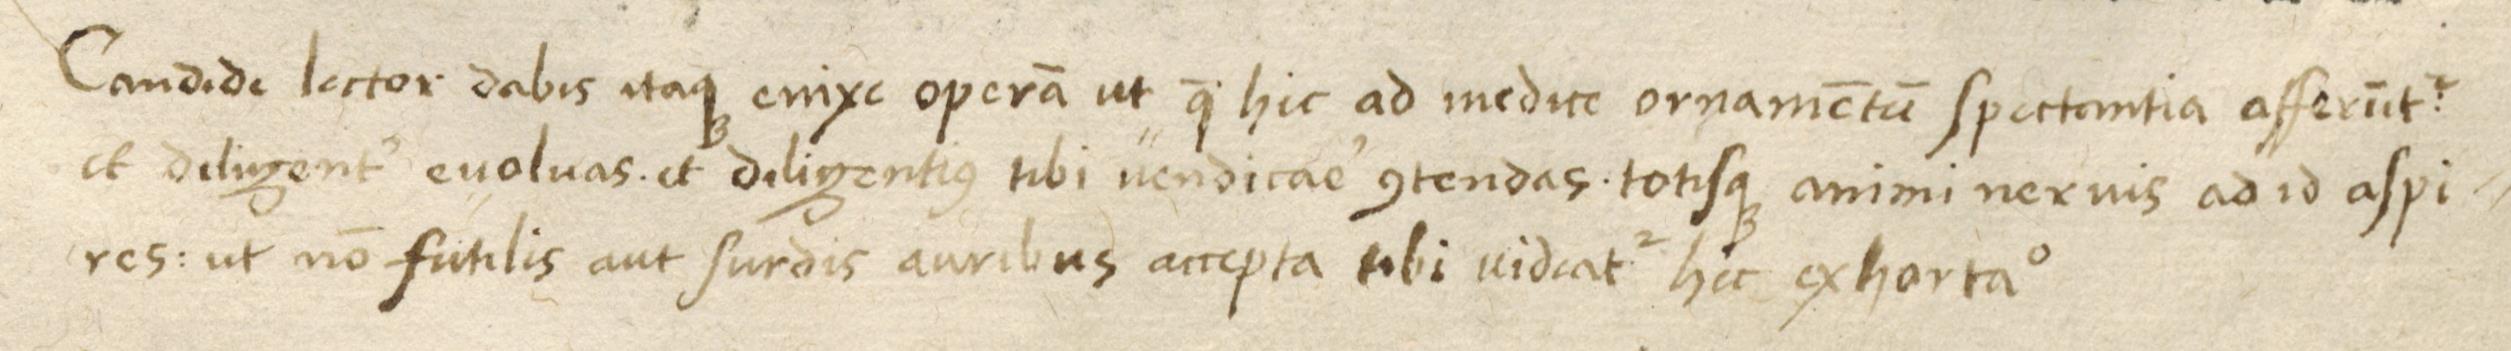 Candide lector dabis itaqꝫ enixe operā ut q̄ hic ad medice ornamētū spectantia afferūtᷣ
et diligentʼ euoluas. et diligentiꝰ tibi uendicaeʼ ꝯtendas. totisqꝫ animi neruis ad id aspi//
res: ut nō futilis aut surdis auribus accepta tibi uideatᷣ hec exhortaᵒ